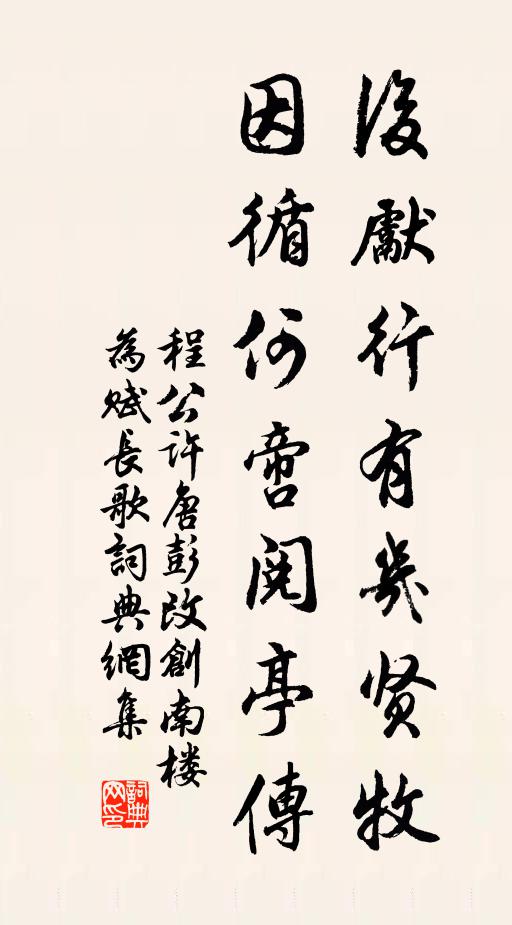 後獻行有幾賢牧
因循何啻閱亭傳
程公許唐彭改創南楼
為赋長歌詞典網集
詞典
网印